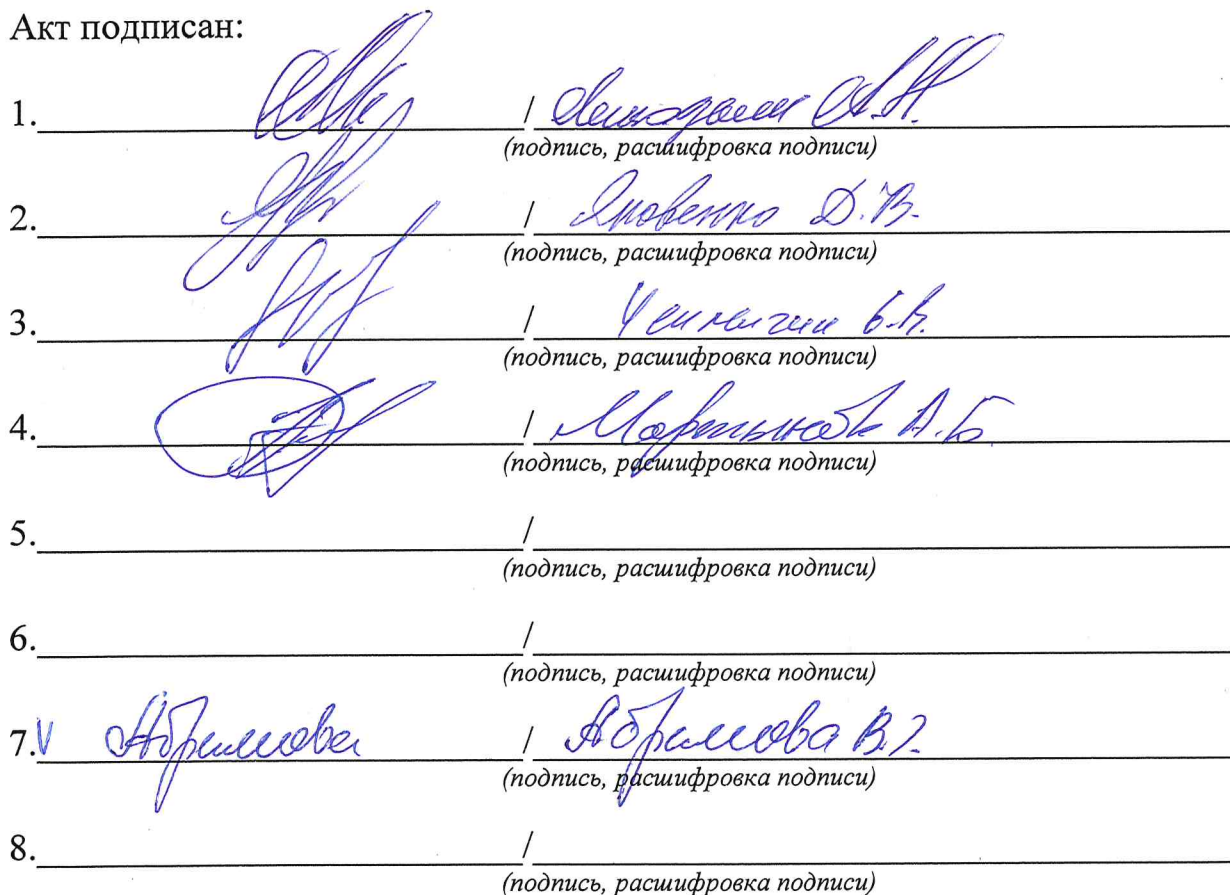 Акт подписан:
1. / А.Н.
(подпись, расшифровка подписи)
2. / Яковенко Д.В.
(подпись, расшифровка подписи)
3. /
(подпись, расшифровка подписи)
4. / А.Б.
(подпись, расшифровка подписи)
5. /
(подпись, расшифровка подписи)
6. /
(подпись, расшифровка подписи)
7. V Абрамова / Абрамова В.
(подпись, расшифровка подписи)
8. /
(подпись, расшифровка подписи)